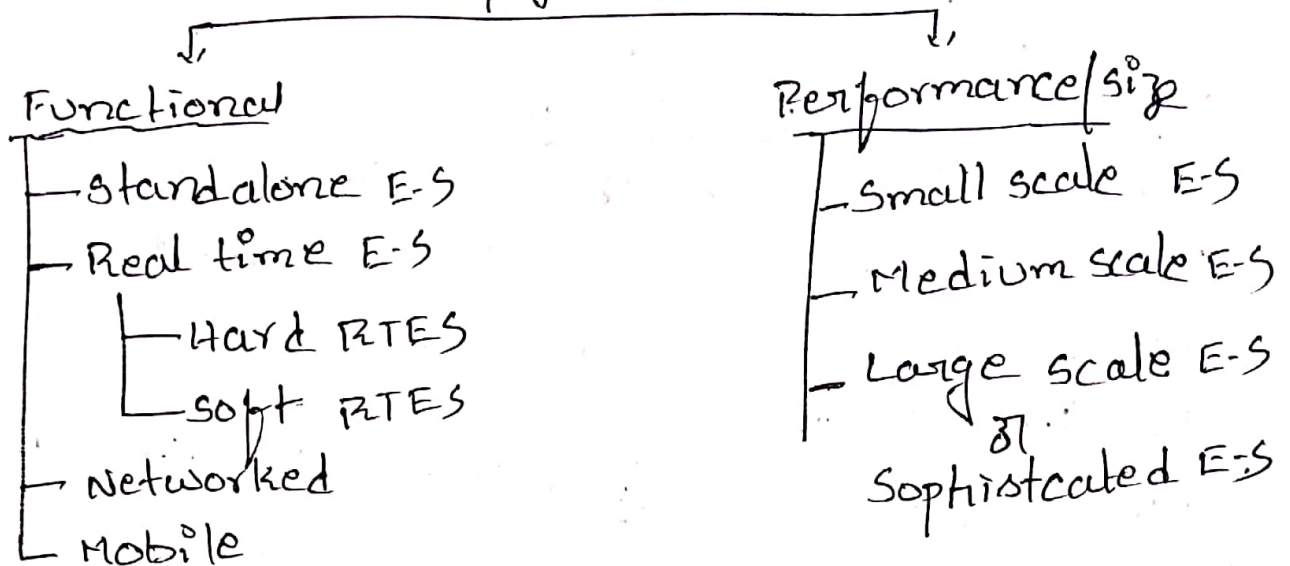 Functional
Standalone E-S
Real time E-S
Hard RTES
Soft RTES
Networked
Mobile
Performance/size
Small scale E-S
Medium scale E-S
Large scale E-S
or
Sophistcated E-S